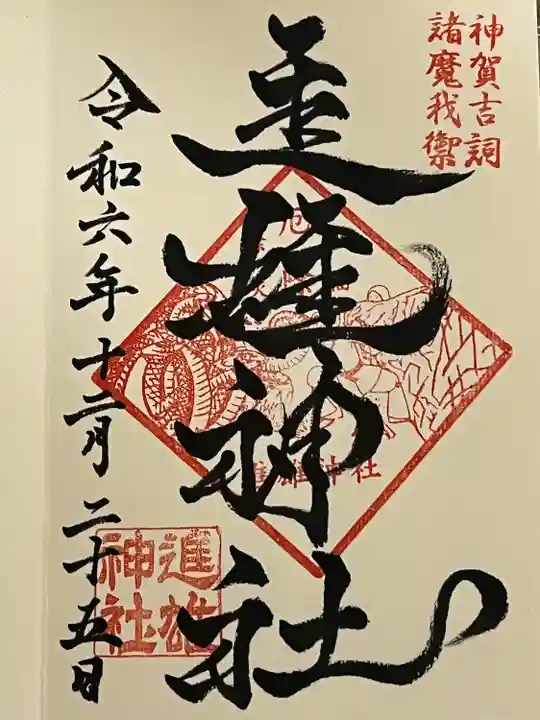 神賀吉詞
諸魔我禦
進雄神社
進雄神社
令和六年十二月二十五日
進雄
神社